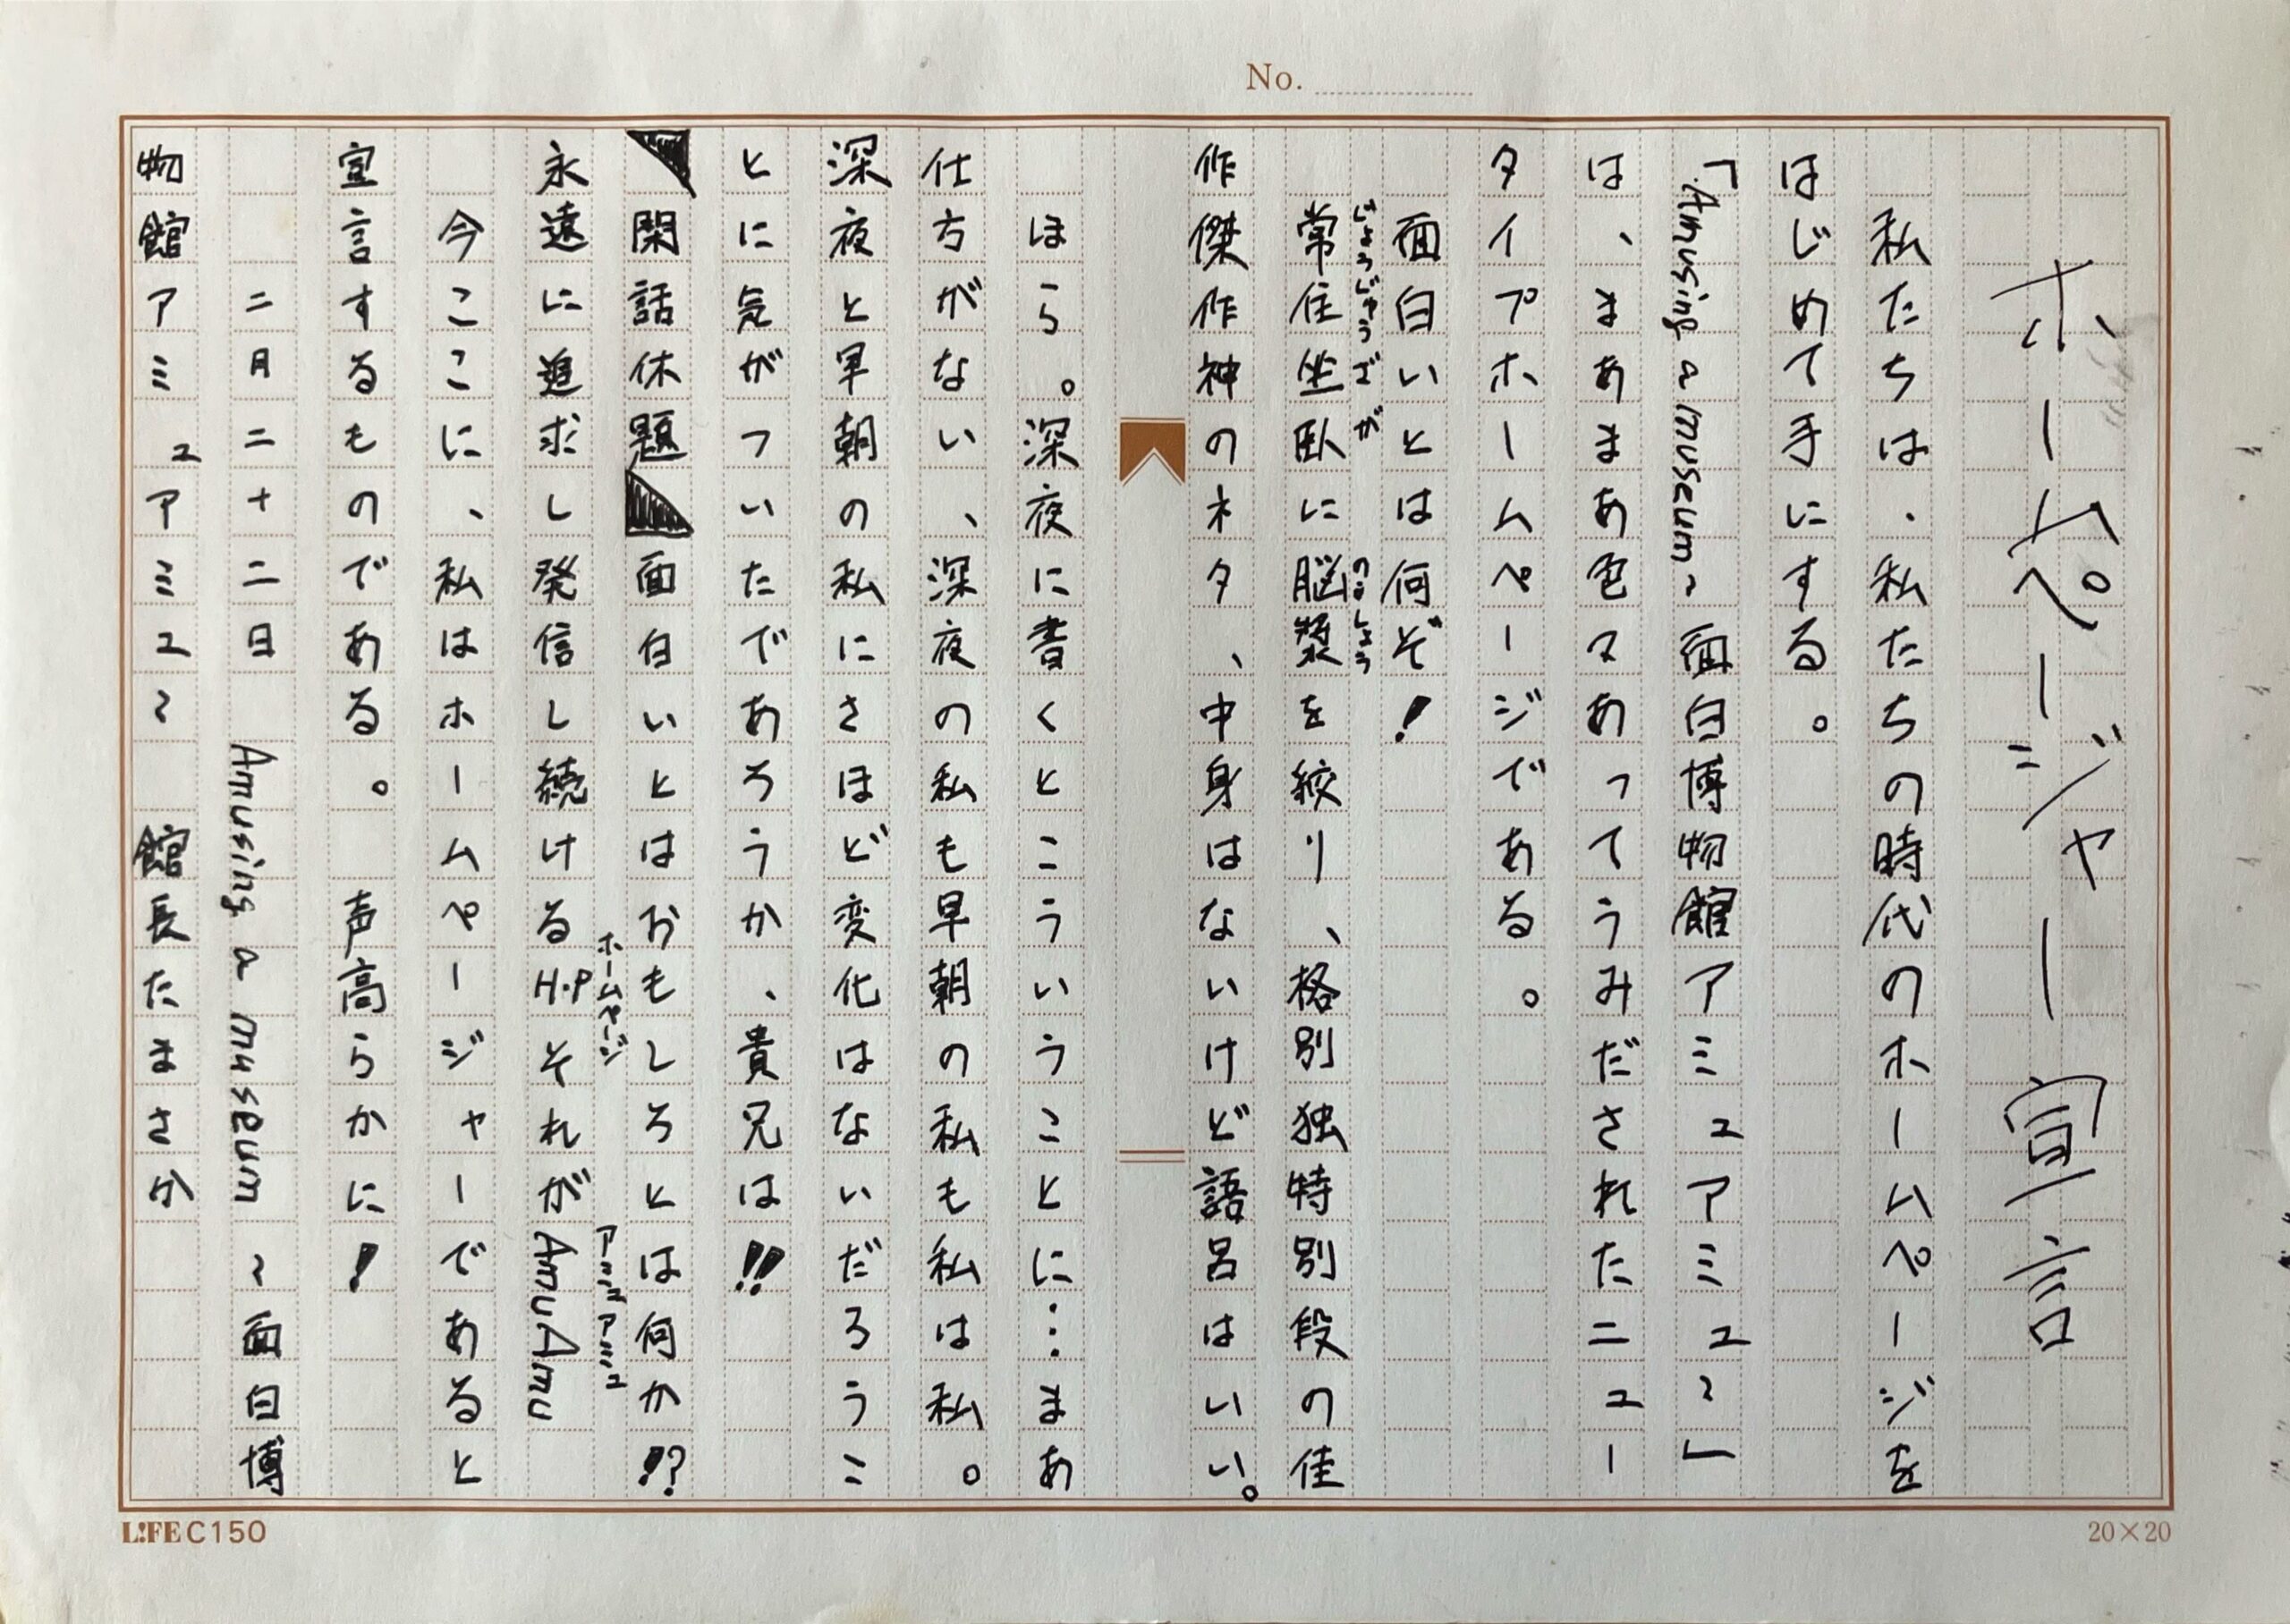 No.
ホームページャー宣言
私たちは、私たちの時代のホームページを
はじめて手にする。
「Amusing a museum～面白博物館アミュアミュ～」
は、まあまあ色々あってうみだされたニュー
タイプホームページである。
面白いとは何ぞ！
常住坐臥に脳漿を絞り、格別独特別段の佳
じょうじゅうざが のうしょう
作傑作神のネタ、中身はないけど語呂はいい。
ほら。深夜に書くとこういうことに…まあ
仕方がない、深夜の私も早朝の私も私は私。
深夜と早朝の私にさほど変化はないだろうこ
とに気がついたであろうか、貴兄は‼
閑話休題 面白いとはおもしろとは何か⁉
永遠に追求し発信し続けるH・PそれがAmuAmu
ホームページ アミュアミュ
今ここに、私はホームページャーであると
宣言するものである。 声高らかに！
二月二十二日 Amusing a museum ～面白博
物館アミュアミュ～ 館長たまさか
L!FE C150
20×20